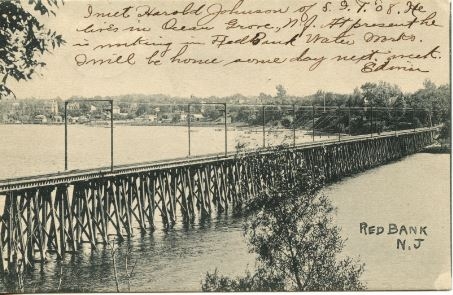 I met Harold Johnson of S.I.T. '08. He
lives in Ocean Grove, N.J. At present he
is working in Red Bank Water Works.
I will be home some day next week.
Edwin
RED BANK
N.J